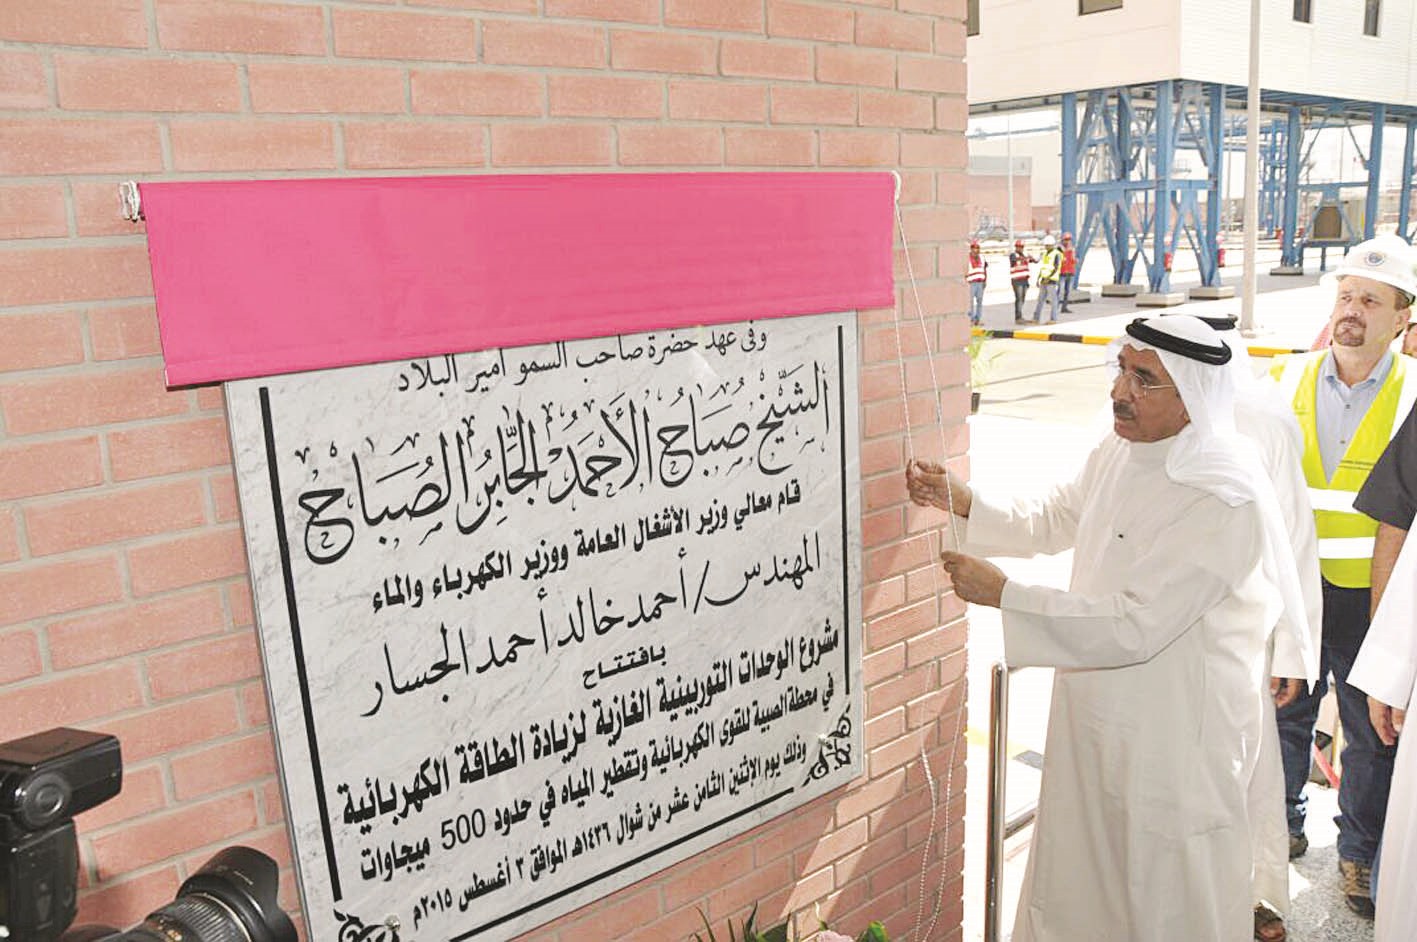 وفي عهد حضرة صاحب السمو أمير البلاد
الشَّيْخ صُبَاحُ الأَحْمَدُ الجَّابِرُ الصُبَاح
قام معالي وزير الأشغال العامة ووزير الكهرباء والماء
المهندس/ أحمد خالد أحمد الجسار
بافتتاح
مشروع الوحدات التوربينية الغازية لزيادة الطاقة الكهربائية
في محطة الصبية للقوى الكهربائية وتقطير المياه في حدود 500 ميجاوات
وذلك يوم الإثنين الثامن عشر من شوال ١٤٣٦هـ الموافق ٣ أغسطس ٢٠١٥م